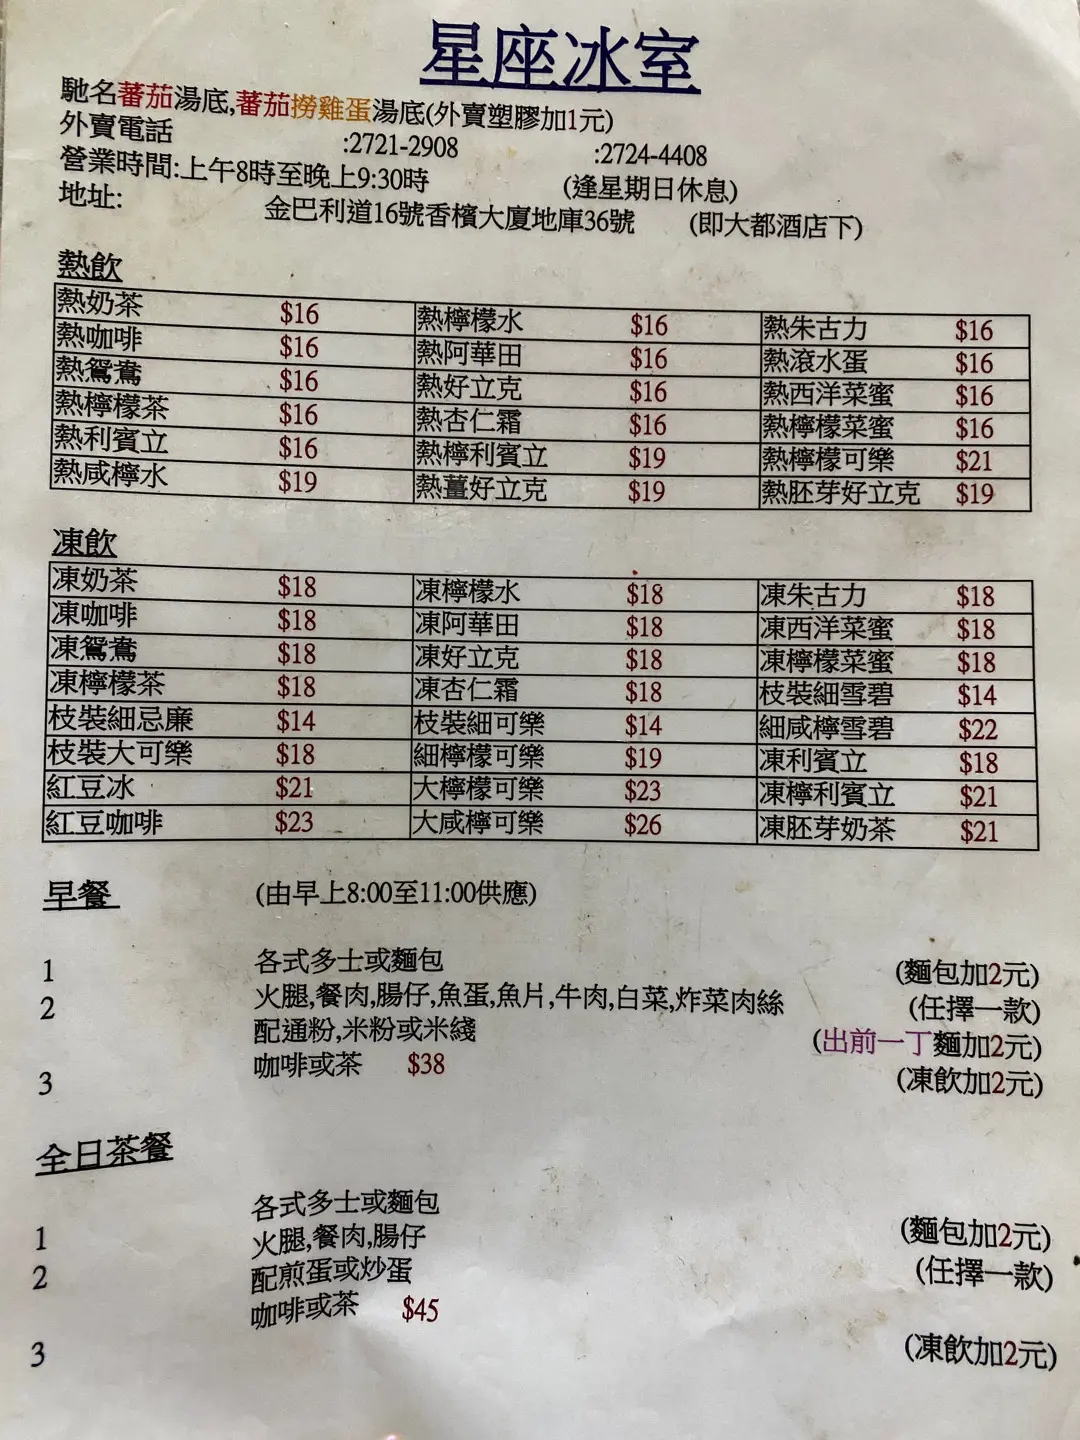 星座冰室
馳名蕃茄湯底,蕃茄撈雞蛋湯底(外賣塑膠加1元)
外賣電話 :2721-2908 :2724-4408
營業時間:上午8時至晚上9:30時 (逢星期日休息)
地址: 金巴利道16號香檳大廈地庫36號 (即大都酒店下)
熱飲
熱奶茶 $16 熱檸檬水 $16 熱朱古力 $16
熱咖啡 $16 熱阿華田 $16 熱滾水蛋 $16
熱鴛鴦 $16 熱好立克 $16 熱西洋菜蜜 $16
熱檸檬茶 $16 熱杏仁霜 $16 熱檸檬菜蜜 $16
熱利賓立 $16 熱檸利賓立 $19 熱檸檬可樂 $21
熱咸檸水 $19 熱薑好立克 $19 熱胚芽好立克 $19
凍飲
凍奶茶 $18 凍檸檬水 $18 凍朱古力 $18
凍咖啡 $18 凍阿華田 $18 凍西洋菜蜜 $18
凍鴛鴦 $18 凍好立克 $18 凍檸檬菜蜜 $18
凍檸檬茶 $18 凍杏仁霜 $18 枝裝細雪碧 $14
枝裝細忌廉 $14 枝裝細可樂 $14 細咸檸雪碧 $22
枝裝大可樂 $18 細檸檬可樂 $19 凍利賓立 $18
紅豆冰 $21 大檸檬可樂 $23 凍檸利賓立 $21
紅豆咖啡 $23 大咸檸可樂 $26 凍胚芽奶茶 $21
早餐 (由早上8:00至11:00供應)
1 各式多士或麵包 (麵包加2元)
2 火腿,餐肉,腸仔,魚蛋,魚片,牛肉,白菜,炸菜肉絲 (任擇一款)
配通粉,米粉或米綫 (出前一丁麵加2元)
3 咖啡或茶 $38 (凍飲加2元)
全日茶餐
1 各式多士或麵包 (麵包加2元)
2 火腿,餐肉,腸仔 (任擇一款)
配煎蛋或炒蛋
3 咖啡或茶 $45 (凍飲加2元)